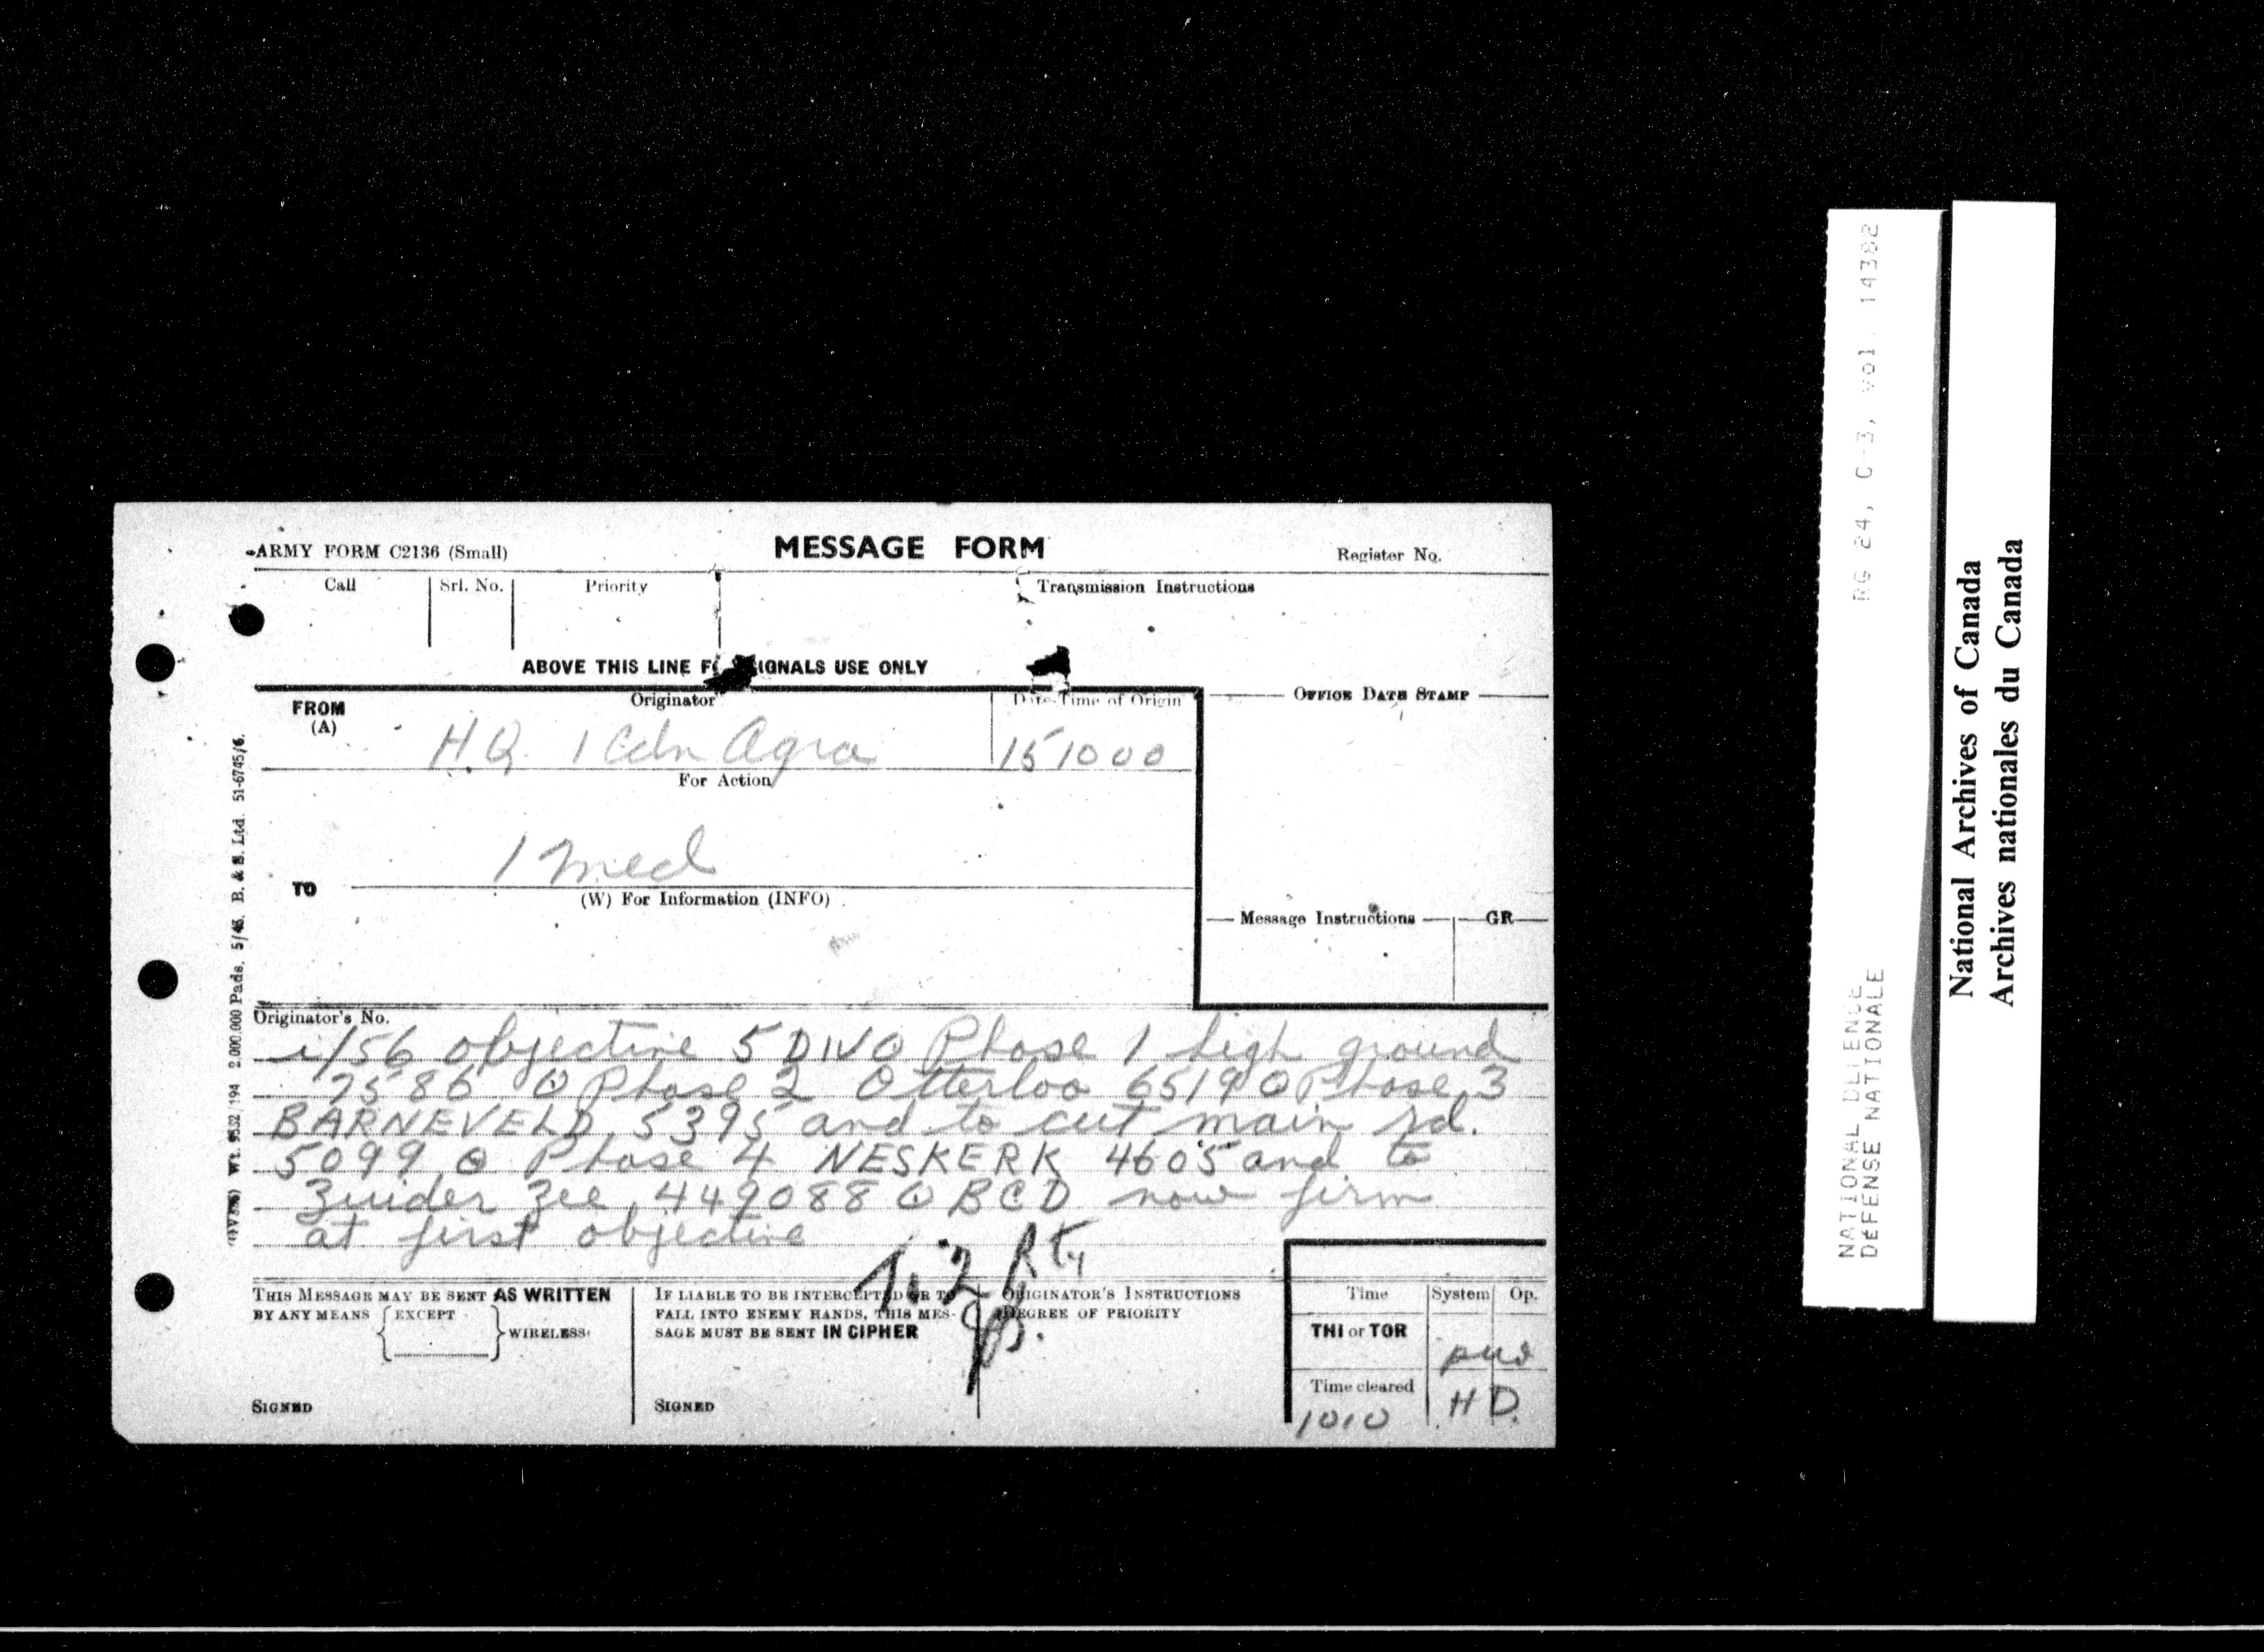 ARMY FORM C2136 (Small)
MESSAGE FORM
Register No.
Call
Srl. No.
Priority
Transmission Instructions
ABOVE THIS LINE FO SIGNALS USE ONLY
FROM
(A)
Originator
Date-Time of Origin
OFFICE DATE STAMP
H.Q. 1 Cdn Agra
151000
For Action
1 Med
TO
(W) For Information (INFO)
Message Instructions
GR
Originator's No.
i/56 objective 5 DIV O Phase 1 high ground
7586 O Phase 2 Otterloo 6519 O Phase 3
BARNEVELD 5395 and to cut main rd.
5099 O Phase 4 NESKERK 4605 and to
Zuider Zee 449088 O BCD now firm
at first objective
7.2 Rty
THIS MESSAGE MAY BE SENT AS WRITTEN
BY ANY MEANS EXCEPT WIRELESS
SIGNED
IF LIABLE TO BE INTERCEPTED OR TO
FALL INTO ENEMY HANDS, THIS MES-
SAGE MUST BE SENT IN CIPHER
SIGNED
ORIGINATOR'S INSTRUCTIONS
DEGREE OF PRIORITY
Time
System
Op.
THI or TOR
Time cleared
1010
HD.
Wt. 9532/194 2,000,000 Pads. 5/45. B. & S. Ltd. 51-6745/6.
RG 24, C-3, vol 14382
NATIONAL DEFENCE
DEFENSE NATIONALE
National Archives of Canada
Archives nationales du Canada